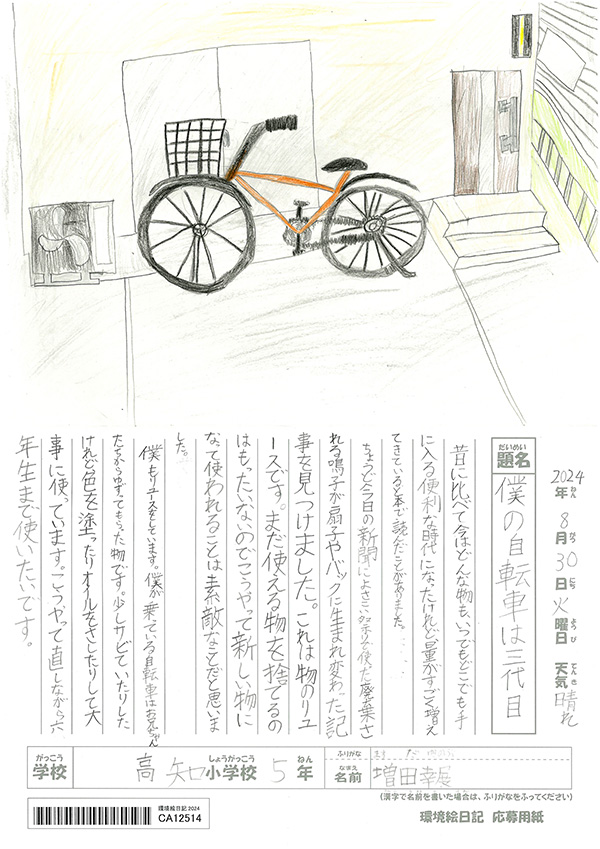 2024年ねん 8月がつ 30日にち 火曜日ようび 天気てんき 晴れ
題名だいめい 僕の自転車は三代目
昔に比べて今はどんな物も、いつでもどこでも手
に入る便利な時代になったけれど、ゴミの量がすごく増え
てきていると本で読んだことがありました。
ちょうど今日の新聞によさこい祭りで使った廃棄さ
れる鳴子が扇子やバックに生まれ変わった記
事を見つけました。これは物のリユ
ースです。まだ使える物を捨てるの
はもったいないのでこうやって新しい物に
なって使われることは素敵なことだと思いま
した。
僕もリユースをしています。僕が乗っている自転車はお兄ちゃん
たちからゆずってもらった物です。少しサビていたりした
けれど色を塗ったりオイルをさしたりして大
事に使っています。こうやって直しながら六
年生まで使いたいです。
学校がっこう 高知小学校しょうがっこう 5年ねん
ふりがな ます だ
名前なまえ 増田幸展
(漢字で名前を書いた場合は、ふりがなをふってください)
環境絵日記2024
CA12514
環境絵日記 応募用紙